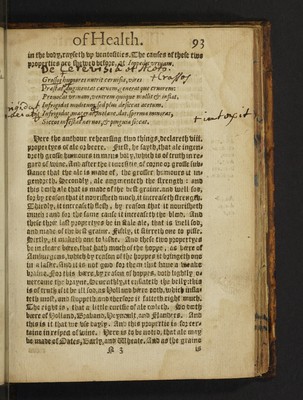 of Health. 93
in the body, rayseth up ventosities. The causes of these two
properties are shewed before, at Impedit urinam.
De Cervisia et Aceto.
Grossos humores nutrit cerevisia, vires
+ crassos
Præstat, & augmentat carnem, generatque cruorem:
Provocat urinam, ventrem quoque mollit & inflat,
Infrigidat modicum, sed plus desiccat acetum.
Infrigidat, macerat,
+ intoxit
Siccos infestat nervos, & pinguia siccat.
Here the authour rehearsing two things, declareth viii.
propertyes of ale or beere. First, he sayth, that ale ingen-
dreth grosse humours in mans body, which is of truth in re-
gard of wine. And after the diversitie of corne or grosse sub-
stance that the ale is made of, the grosser humours it in-
gendreth. Secondly, ale augmenteth the strength: and
this doth ale that is made of the best graine, and well sod,
for by reason that it nourisheth much, it increaseth strength.
Thirdly, it increaseth flesh, by reason that it nourisheth
much: and for the same cause it increaseth the blood. And
these three last propertyes be in stale ale, that is well sod,
and made of the best graine. Fiftly, it stirreth one to pisse.
Sixtly, it maketh one to laske. And these two propertyes
be in cleare beere, that hath much of the hoppe, as beere of
Amburgens, which by reason of the hoppes it bringeth one
in a laske. And it is not good for them that have a weake
brayne. For this beere, by reason of hoppes, doth lightly o-
vercome the brayne. Seventhly, it inflateth the belly: this
is of truth if it be ill sod, as Holland beere doth, which infla-
teth most, and stoppeth, and therefore it fatteth right much.
The eight is, that a little curtsie of ale cooleth. So doth
beere of Holland, Braband, Heynault, and Flanders. And
this it is that we use dayly. And this propertie is for cer-
taine in respect of wine. Here is to be noted, that ale may
be made of Oates, Barly, and Wheate. And as the graine
N 3 is